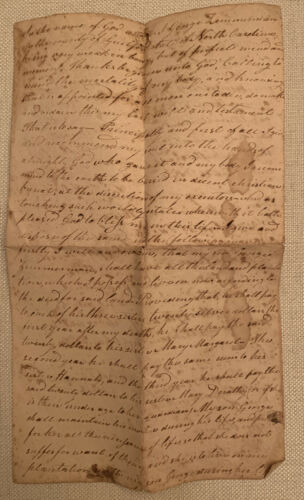 In the name of God Amen I George Zimmerman
of the county of and State of North Carolina,
being very weak in body but of perfect mind and
memory, Thanks be given unto God, Calling to
mind the mortality of my body, and knowing
that it is appointed for all men once to die, do make
and ordain this my last will and testament
That is to say — Principally and first of all I give
and recommend my soul into the hand of
almighty God who gave it and my body I recom
mend to the earth to be buried in decent christian
burial, at the discretion of my executors, and as
touching such worldly estate wherewith it hath
pleased God to bless me in this life, I give and
dispose of the same in the following
first, I will and my son George
Zimmerman, shall have all the land and planta
tion, which I possess and he now according to
the deed for said land Providing that he shall pay
to each of his three sisters twenty dollars
first year after my death he shall pay the said
twenty dollars to his sister Mary Margaret, The
second year he shall pay the same sum to his
sister Hannah, and the third year he shall pay the
said twenty dollars to his sister Mary Dorothy, or if
is then under age to her guardian. My son George
shall maintain his mother during her life, and
for her all the necessaries of life so that she does not
suffer for want of them and she is to live on my
plantation with my son George during her